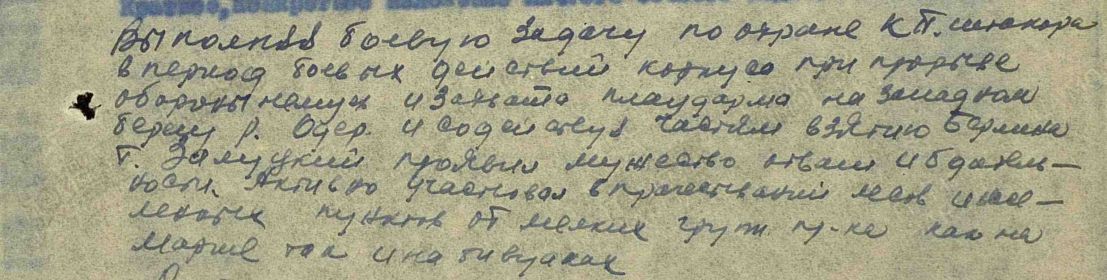 Выполняя боевую задачу по охране КП. штакора
в период боевых действий корпуса при прорыве
обороны немцев и захвата плацдарма на западном
берегу р. Одер. и содействуя частям взятию Берлина
Т. Залуцкий проявил мужество отвагу и бдитель-
ность. Активно участвовал в прочесывании лесов и насе-
ленных пунктов от мелких групп пр-ка как на
марше так и на бивуаках